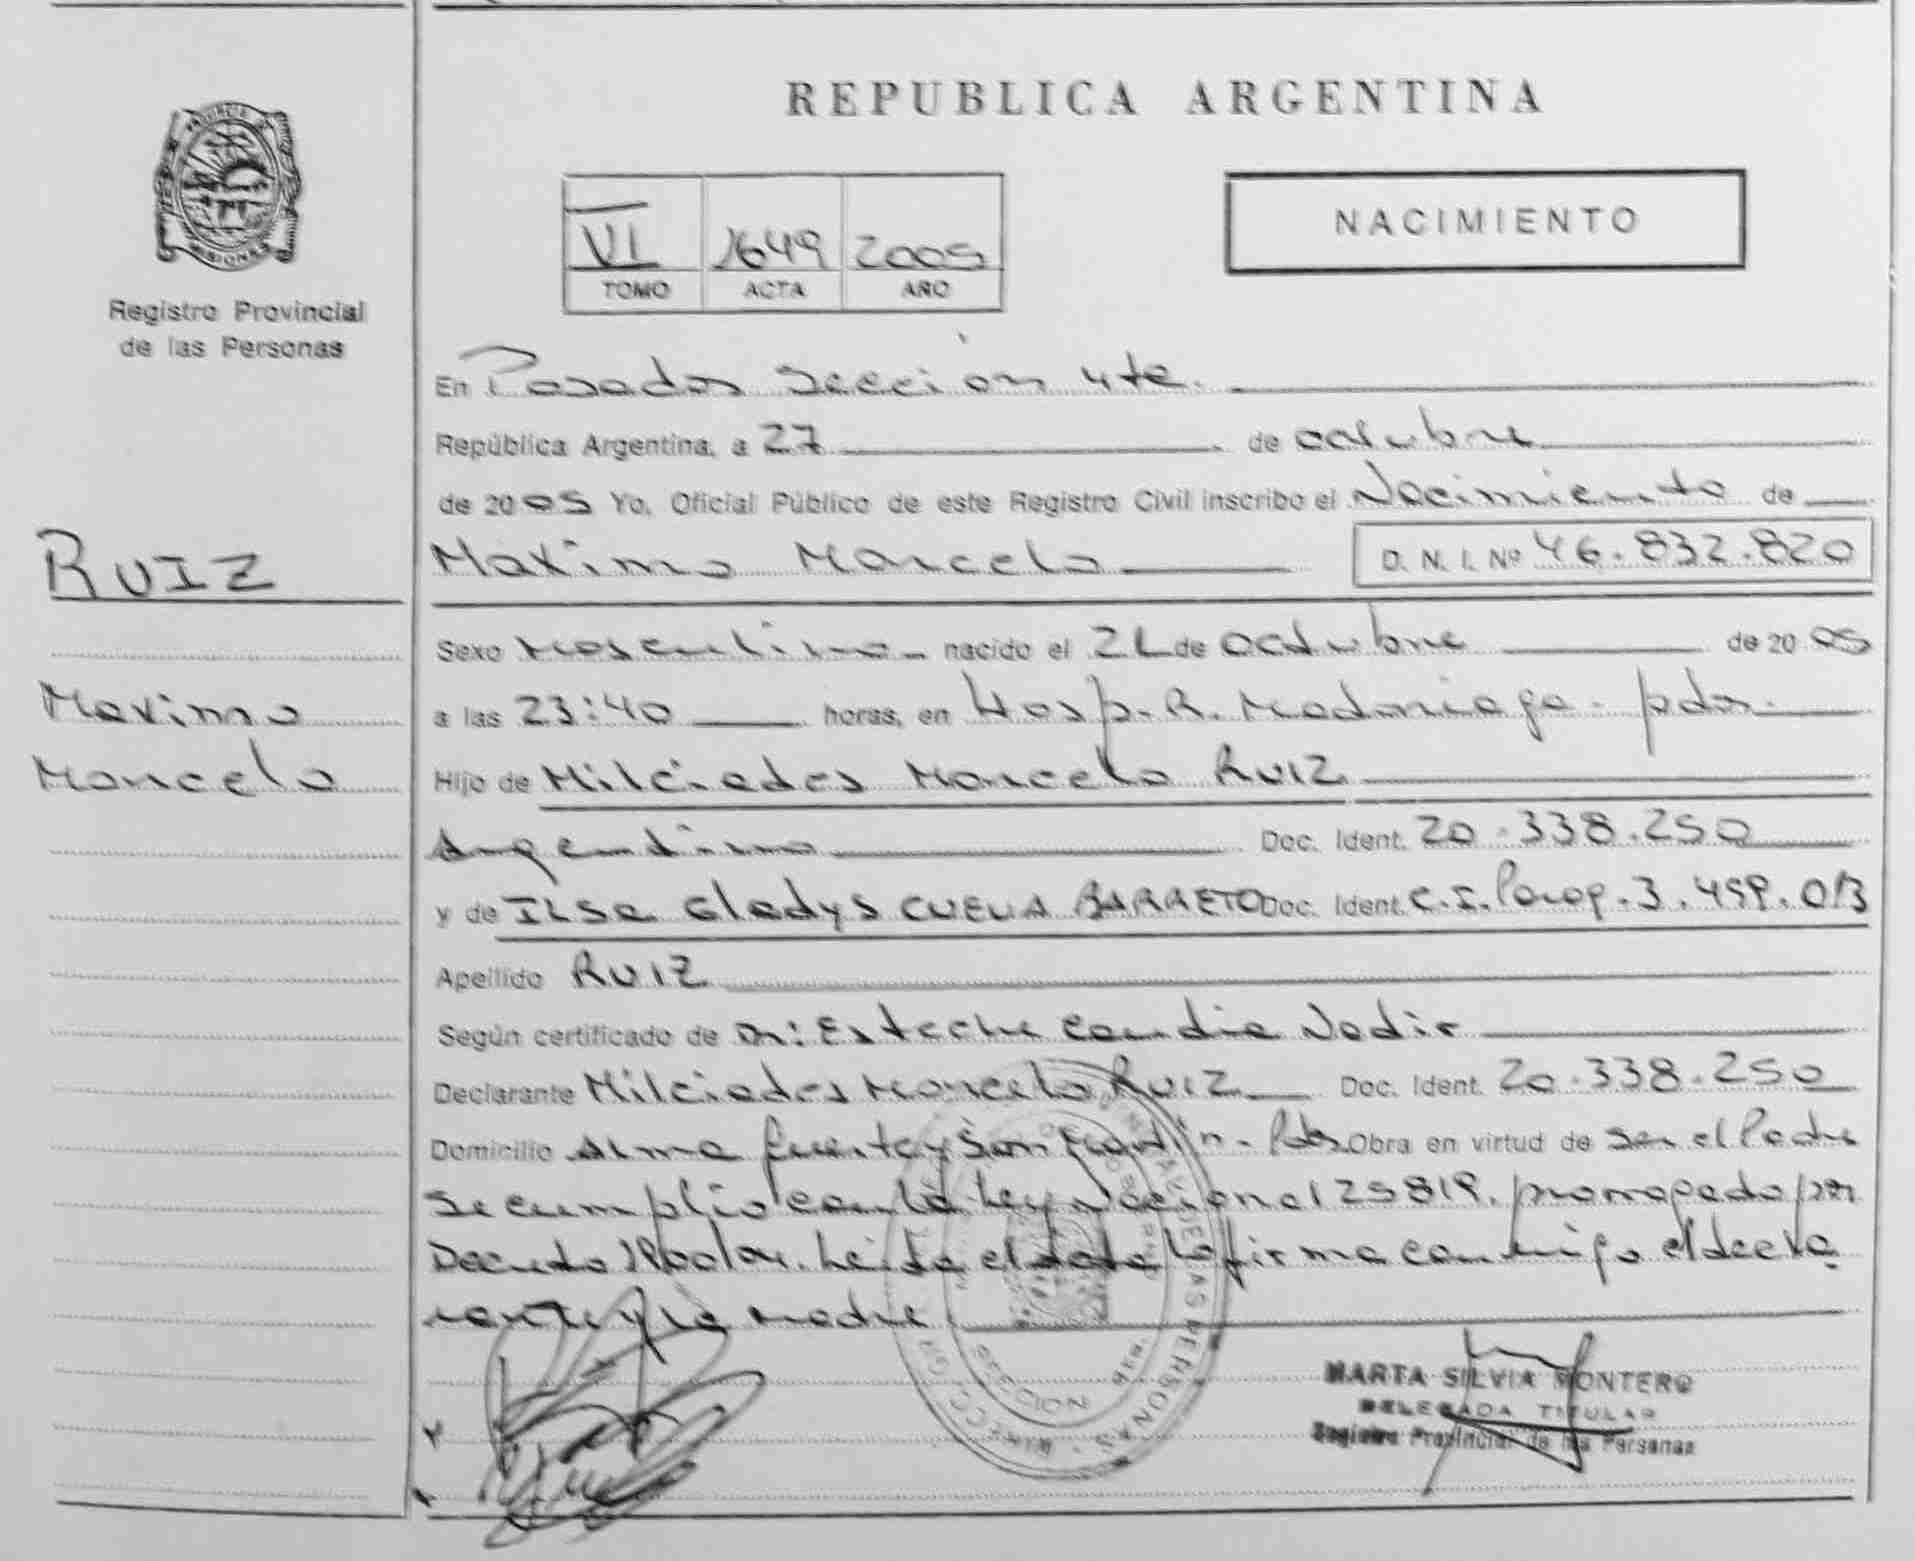 REPUBLICA ARGENTINA
PROVINCIA DE MISIONES
Registro Provincial
de las Personas
VI 1649 2005
TOMO ACTA AÑO
NACIMIENTO
En Posadas Sección 4ta.
República Argentina, a 27 de octubre
de 2005 Yo, Oficial Público de este Registro Civil inscribo el Nacimiento de
RUIZ
Maximo Marcelo D. N. I. Nº 46.832.820
Sexo Masculino nacido el de octubre de 2005
Maximo
a las 23:40 horas, en Hosp. R. Madariaga - pdas.
Marcelo
Hijo de Milciades Marcelo RUIZ
Argentino Doc. Ident. 20.338.250
y de ILSa Gladys CUEVA BARRETO Doc. Ident. C.I. Parag. 3.459.013
Apellido RUIZ
Según certificado de Dr: Esteche Nadir
Declarante Milciades Marcelo RUIZ Doc. Ident. 20.338.250
Domicilio fuerte y San Martín - Pdas Obra en virtud de ser el Padre
se cumplio con la Ley Nacional 25819. prorrogado por
Decreto Leida el acta la firma conmigo el decla
rante y la madre
SECCION
MARTA SILVIA MONTERO
DELEGADA TITULAR
Registro Provincial de las Personas